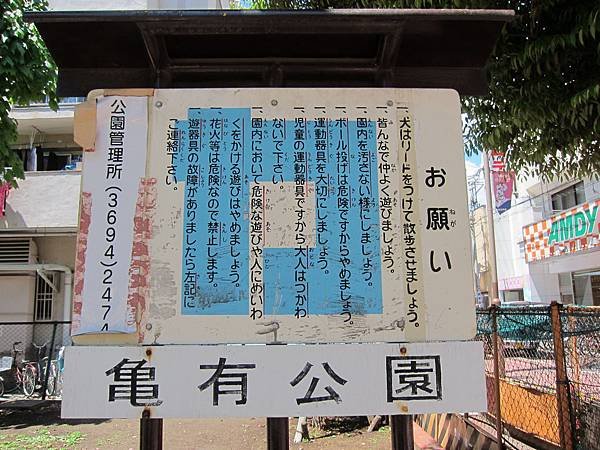 お願い
一、犬はリードをつけて散歩させましょう。
一、皆んなで仲よく遊びましょう。
一、園内を汚さない様にしましょう。
一、ボール投げは危険ですからやめましょう。
一、運動器具を大切にしましょう。
一、児童の運動器具ですから大人はつかわ
ないで下さい。
一、園内において危険な遊びや人にめいわ
くをかける遊びはやめましょう。
一、花火等は危険なので禁止します。
一、遊器具の故障がありましたら左記に
ご連絡下さい。
公園管理所(3694)2474
亀有公園
AMDY